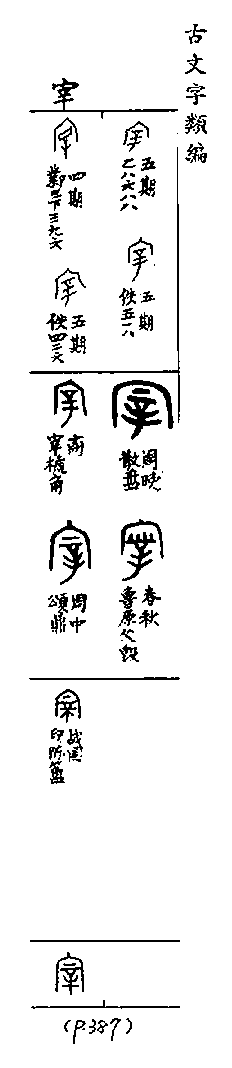 古文字類編
宰
五期
乙八六八八
四期
鄴三下三九六
五期
佚五一八
五期
佚四二六
周晚
散盤
商
宰椃角
春秋
魯原父𣪘
周中
頌鼎
战国
印陈簠
(P.387)